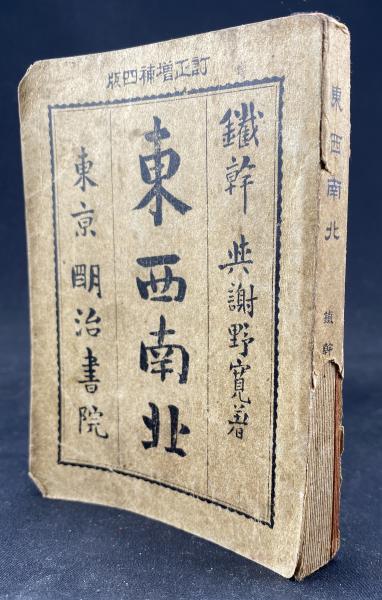 訂正増補四版
鐵幹 與謝野寛著
東西南北
東京 明治書院
東西南北 鐵幹